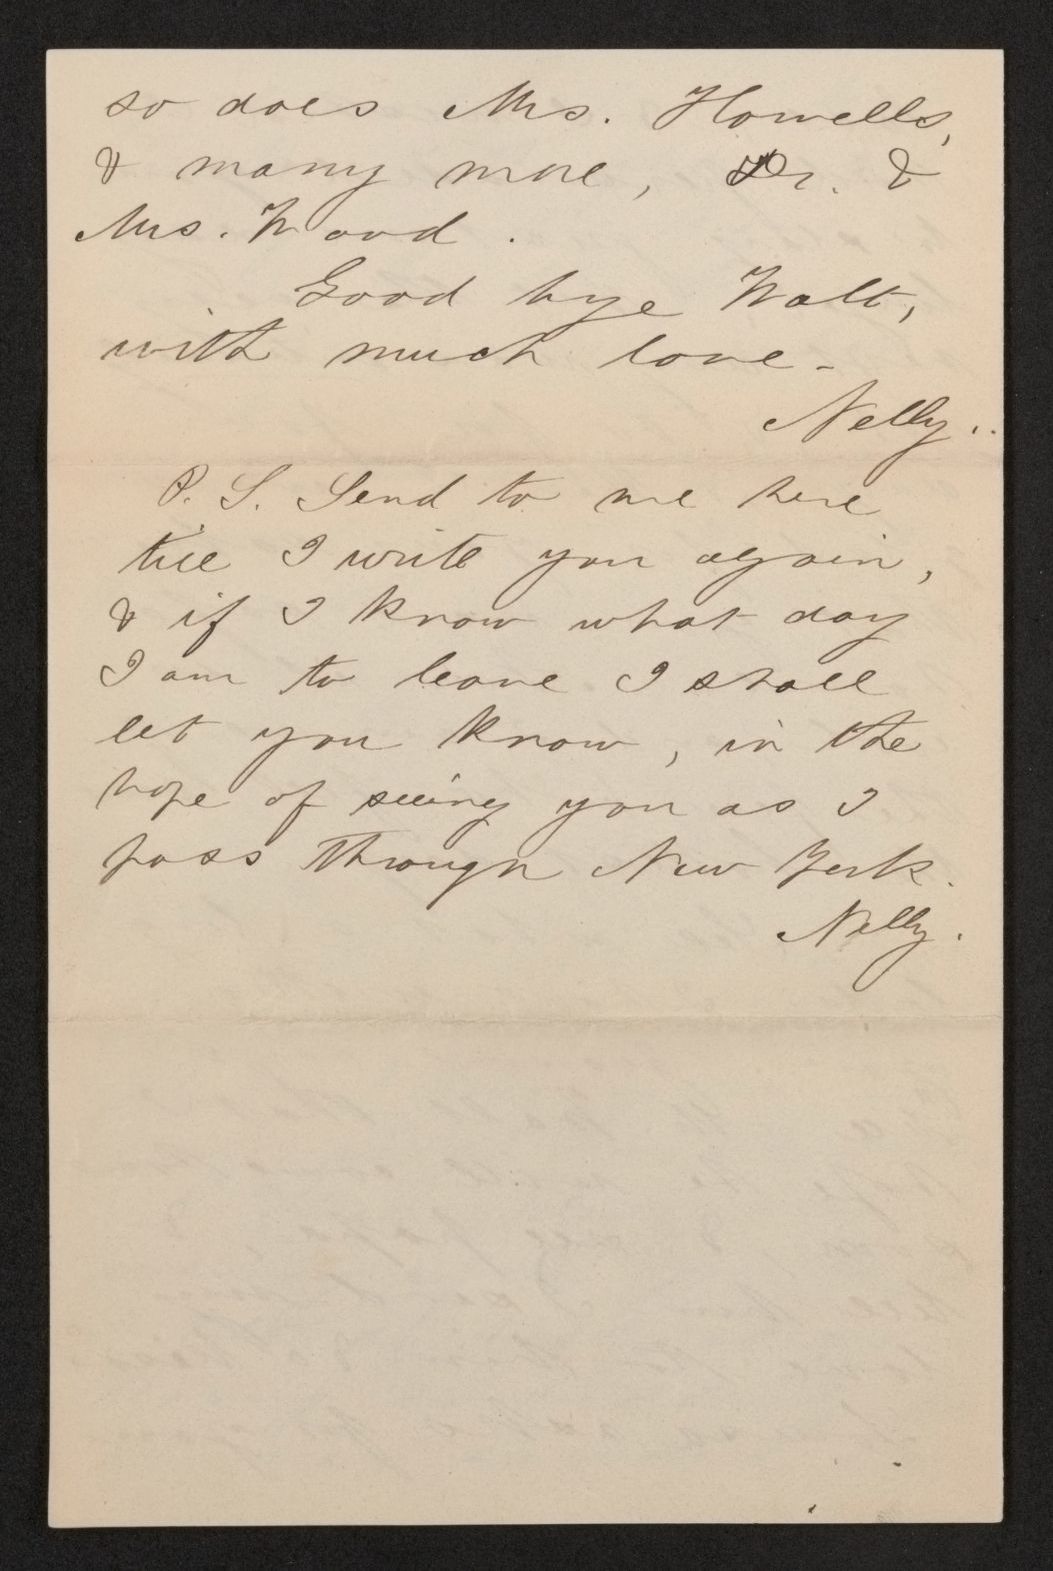 so does Mrs. Howells,
& many more, Dr. &
Mrs. Wood.
Good bye Walt,
with much love.
Nelly.
P. S. Send to me here
till I write you again,
& if I know what day
I am to leave I shall
let you know, in the
hope of seeing you as I
pass through New York.
Nelly.